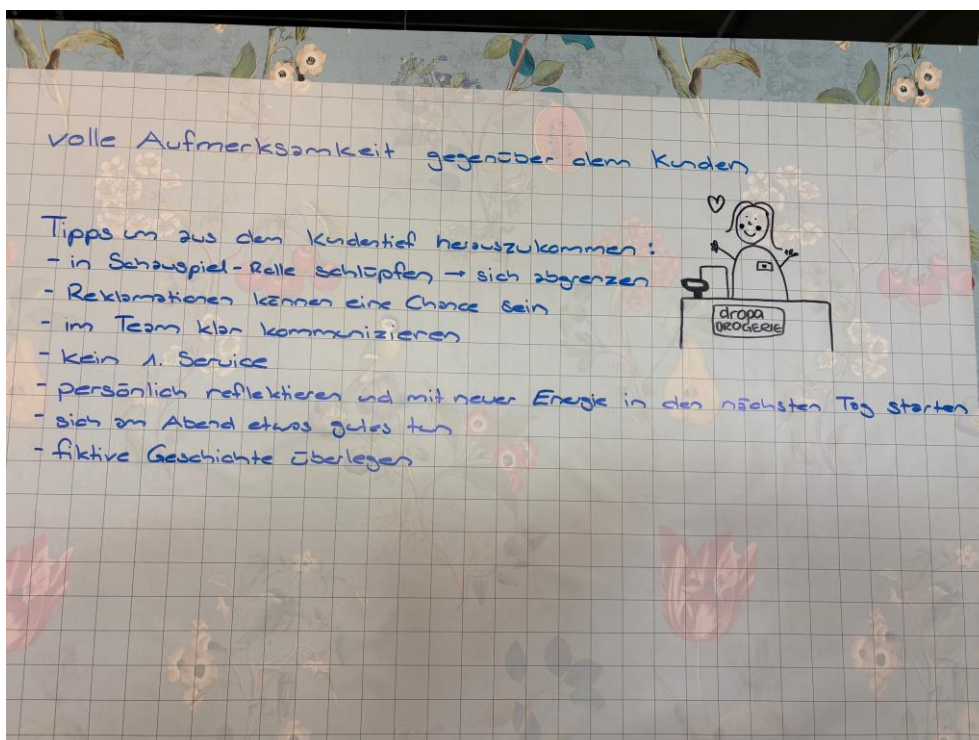 volle Aufmerksamkeit gegenüber dem Kunden
Tipps um aus dem Kundentief herauszukommen:
- in Schauspiel-Rolle schlüpfen → sich abgrenzen
- Reklamationen können eine Chance sein
- im Team klar kommunizieren
- kein 1. Service
- persönlich reflektieren und mit neuer Energie in den nächsten Tag starten
- sich am Abend etwas gutes tun
- fiktive Geschichte überlegen
dropa
DROGERIE